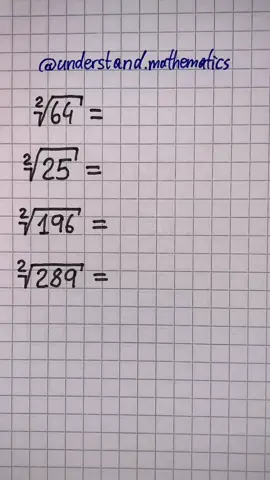 @understand.mathematics
²√64 =
²√25 =
²√196 =
²√289 =